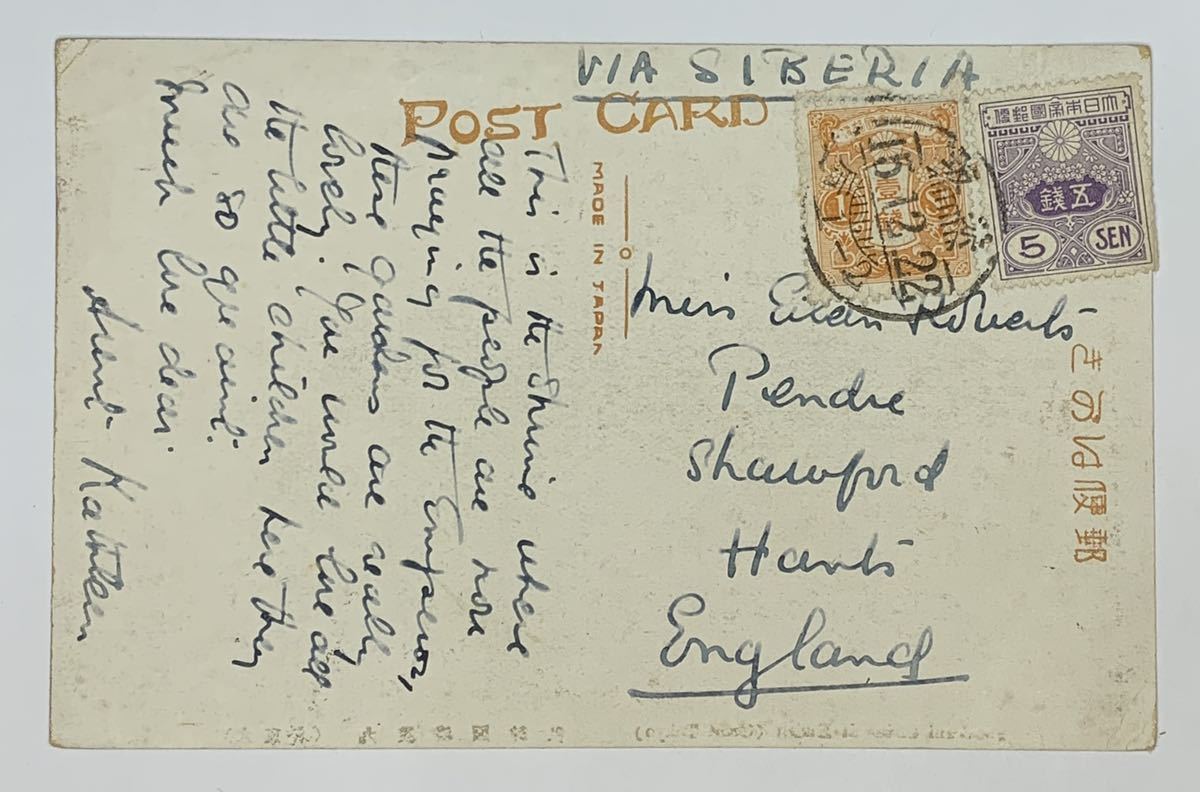 VIA SIBERIA
POST CARD
MADE IN JAPAN
大日本帝國郵便
五錢
5 SEN
1
16 12 22
郵便はがき
This is the shrine where
all the people are now
praying for the Emperor,
these gardens are really
lovely. You would love all
the little children here they
are so quaint.
Much love dear.
Aunt Kathleen
Miss Roberts
Pendre
Shawford
Hants
England